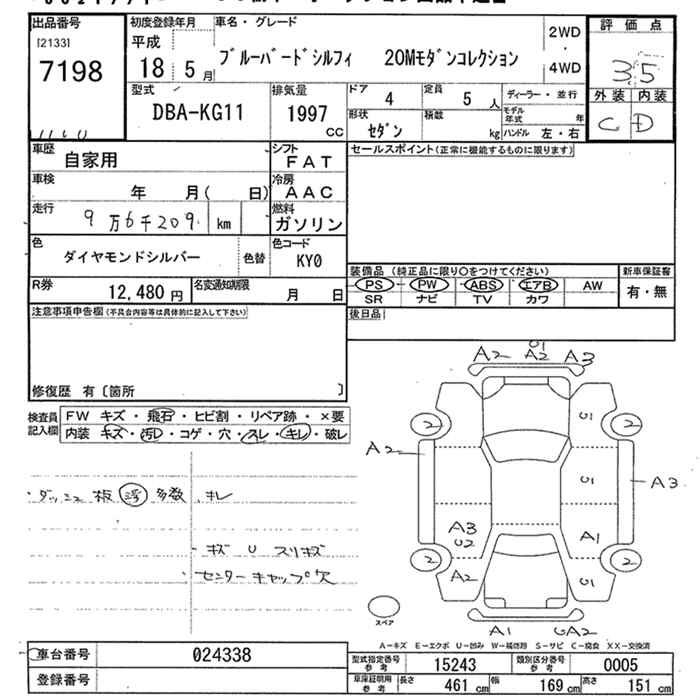 出品番号 初度登録年月 車名・グレード 2WD 評価点
[2133] 平成
7198 18年5月 ブルーバードシルフィ 20Mモダンコレクション 4WD 35
型式 排気量 ドア 4 定員 5人 ディーラー・並行 外装 内装
DBA-KG11 1997cc 形状 セダン 積載 kg モデル年式 年 C D
ハンドル 左・右
車歴 自家用 シフト FAT セールスポイント(正常に機能するものに限ります)
車検 年 月( 日) 冷房 AAC
走行 9万6千209km 燃料 ガソリン
色 ダイヤモンドシルバー 色替 色コード KY0
R券 12,480円 名変通知期限 月 日
装備品(純正品に限り○をつけてください) 新車保証書
PS PW ABS エアB AW 有・無
SR ナビ TV カワ
注意事項申告欄(不具合内容等は具体的に記入して下さい) 後日品
修復歴 有〔箇所 〕
検査員記入欄 FW キズ・飛石・ヒビ割・リペア跡・×要
内装 キズ・汚レ・コゲ・穴・スレ・キレ・破レ
・ダッシュ板 浮 多数
・キレ
・キズ U スリキズ
・センターキャップ欠
A2 U1 A2 A3
2 U1 2
A2 U1 A3
A3 U2 A1
2 A2 U1 2
スペア A1 UA2
A-キズ E-エクボ U-凹み W-補修跡 S-サビ C-腐食 XX-交換済
車台番号 024338 型式指定番号 参考 15243 類別区分番号 参考 0005
登録番号 車庫証明用 参考 長さ 461cm 幅 169cm 高さ 151cm